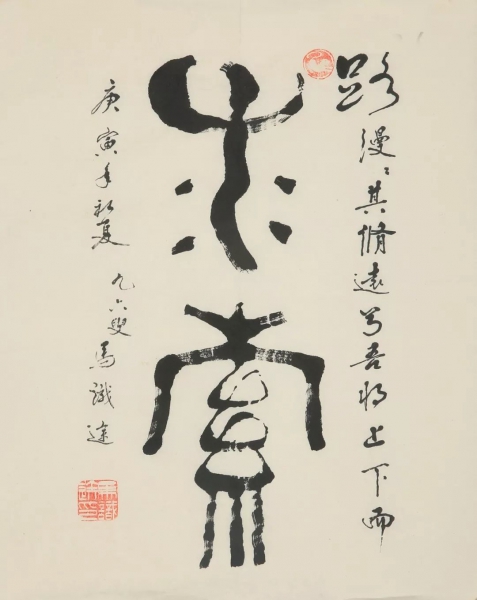 路漫〻其脩遠兮吾将上下而
求索
庚寅年初夏 九六叟馬識途